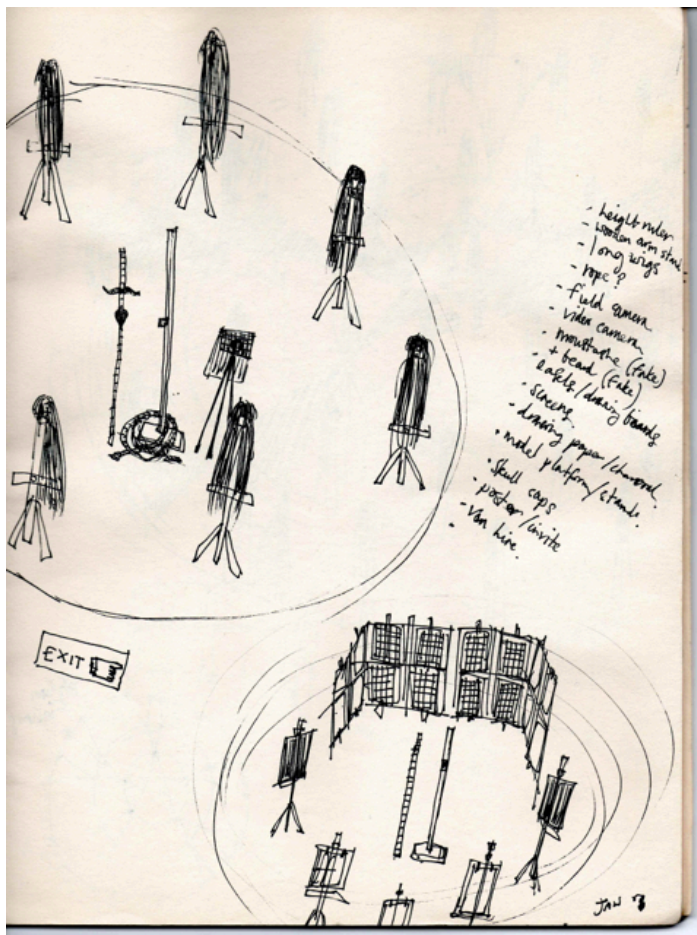 - height ruler
- wooden arm stand.
- long wigs
- rope?
- field camera
- video camera
- moustache (fake)
+ beard (fake)
- easels/drawing boards
- screens.
- drawing paper/charcoal.
- model platform/stand.
- skull caps
- poster/invite
- van hire.
EXIT
JAN